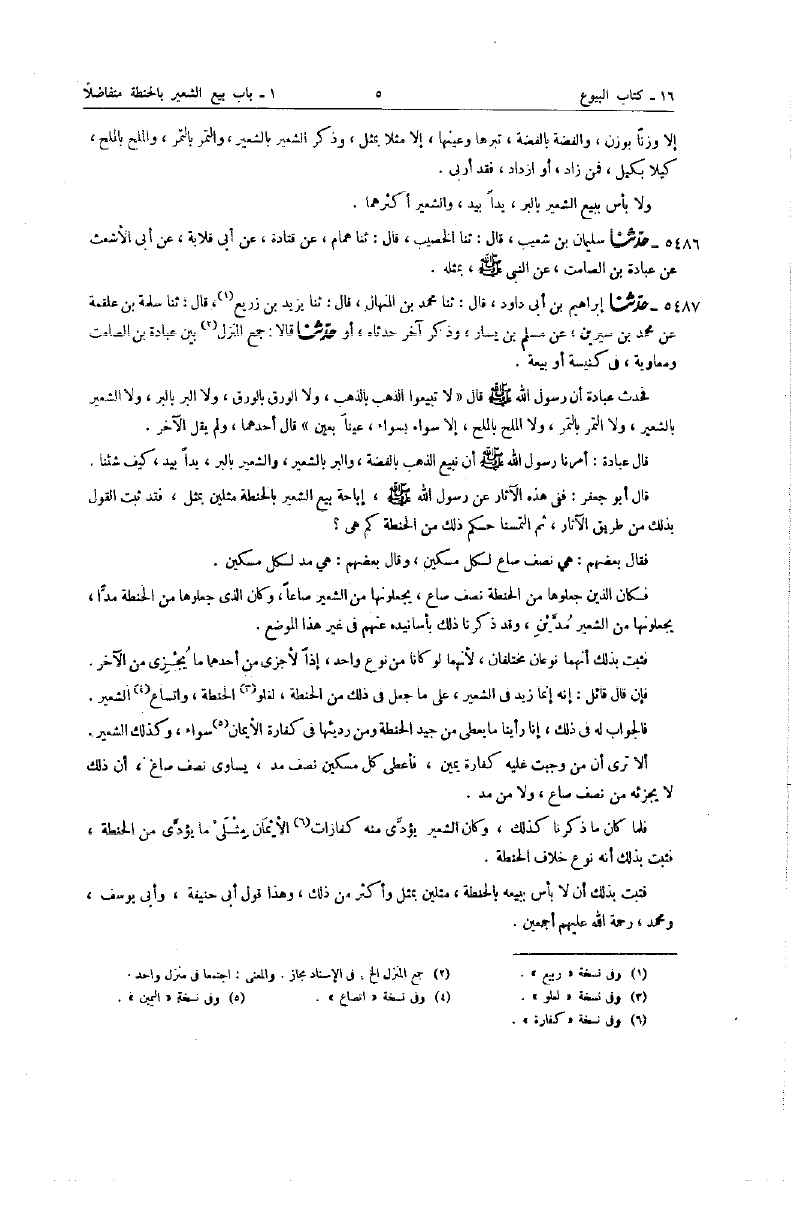 ١٦ ـ كتاب البيوع ٥ ١ ـ باب بيع الشعير بالحنطة متفاضلاً
إلا وزناً بوزن ، والفضة بالفضة ، تبرها وعينها ، إلا مثلا بمثل ، وذكر الشعير بالشعير ، والتمر بالتمر ، والملح بالملح ،
كيلا بكيل ، فمن زاد ، أو ازداد ، فقد أربى .
ولا بأس ببيع الشعير بالبر ، يداً بيد ، والشعير أكثرهما .
٥٤٨٦ ـ حدثنا سليمان بن شعيب ، قال : ثنا الخصيب ، قال : ثنا همام ، عن قتادة ، عن أبى قلابة ، عن أبى الأشعث
عن عبادة بن الصامت ، عن النبي ﷺ ، بمثله .
٥٤٨٧ ـ حدثنا إبراهيم بن أبى داود ، قال : ثنا محمد بن المنهال ، قال : ثنا يزيد بن زريع(١)، قال : ثنا سلمة بن علقمة
عن محمد بن سيرين ، عن مسلم بن يسار ، وذكر آخر حدثاه ، أو حدثنا قالا : جمع المنزل(٢) بين عبادة بن الصامت
ومعاوية ، فى كنيسة أو بيعة .
فحدث عبادة أن رسول الله ﷺ قال « لا تبيعوا الذهب بالذهب ، ولا الورق بالورق ، ولا البر بالبر ، ولا الشعير
بالشعير ، ولا التمر بالتمر ، ولا الملح بالملح ، إلا سواء بسواء ، عيناً بعين » قال أحدهما ، ولم يقل الآخر .
قال عبادة : أمرنا رسول الله ﷺ أن نبيع الذهب بالفضة ، والبر بالشعير ، والشعير بالبر ، يداً بيد ، كيف شئنا .
قال أبو جعفر : ففى هذه الآثار عن رسول الله ﷺ ، إباحة بيع الشعير بالحنطة مثلين بمثل ، فقد ثبت القول
بذلك من طريق الآثار ، ثم التمسنا حكم ذلك من الحنطة كم هى ؟
فقال بعضهم : هي نصف صاع لكل مسكين ، وقال بعضهم : هي مد لكل مسكين .
فكان الذين جعلوها من الحنطة نصف صاع ، يجعلونها من الشعير صاعاً، وكان الذى جعلوها من الحنطة مدًّا ،
يجعلونها من الشعير مُدَّيْنِ ، وقد ذكرنا ذلك بأسانيده عنهم فى غير هذا الموضع .
فثبت بذلك أنهما نوعان مختلفان ، لأنهما لو كانا من نوع واحد ، إذاً لأجزى من أحدهما ما يُجْزِى من الآخر .
فإن قال قائل : إنه إنما زيد فى الشعير ، على ما جعل فى ذلك من الحنطة ، لغلو(٣) الحنطة ، واتساع(٤) الشعير .
فالجواب له فى ذلك ، إنا رأينا ما يعطى من جيد الحنطة ومن رديئها فى كفارة الأيمان(٥) سواء ، وكذلك الشعير .
ألا ترى أن من وجبت عليه كفارة يمين ، فأعطى كل مسكين نصف مد ، يساوى نصف صاع ، أن ذلك
لا يجزئه من نصف صاع ، ولا من مد .
فلما كان ما ذكرنا كذلك ، وكان الشعير يؤدَّى منه كفارات(٦) الأيْمان مِثْلَىْ ما يؤدَّى من الحنطة ،
فثبت بذلك أنه نوع خلاف الحنطة .
فثبت بذلك أن لا بأس ببيعه بالحنطة ، مثلين بمثل وأكثر من ذلك ، وهذا قول أبى حنيفة ، وأبى يوسف ،
ومحمد ، رحمة الله عليهم أجمعين .
(١) وفى نسخة « ربيع » . (٢) جمع المنزل الخ . فى الإسناد مجاز . والمعنى : اجتمعا فى منزل واحد .
(٣) وفى نسخة « لعلو » . (٤) وفى نسخة « اتصاع » . (٥) وفى نسخة « اليمين » .
(٦) وفى نسخة « كفارة » .